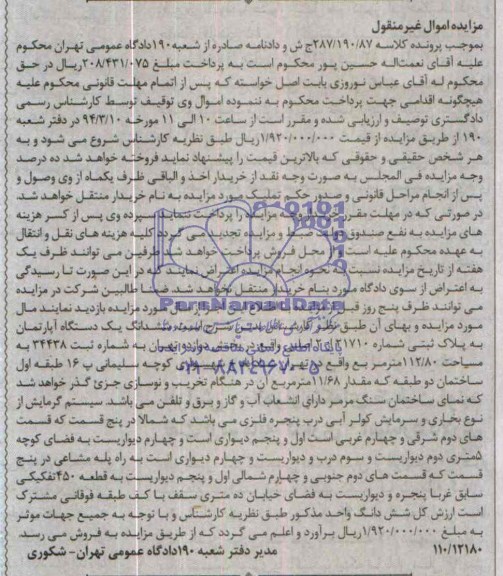 مزایده اموال غیر منقول
بموجب پرونده کلاسه ۲۸۷/۱۹۰/۸۷ج ش و دادنامه صادره از شعبه ۱۹۰دادگاه عمومی تهران محکوم
علیه آقای نعمت‌اله حسین پور محکوم است به پرداخت مبلغ ۲۰۸/۴۳۱/۰۷۵ریال در حق
محکوم له آقای عباس نوروزی بابت اصل خواسته که پس از اتمام مهلت قانونی محکوم علیه
هیچگونه اقدامی جهت پرداخت محکوم به ننموده اموال وی توقیف توسط کارشناس رسمی
دادگستری توصیف و ارزیابی شده و مقرر است از ساعت ۱۰ الی ۱۱ مورخه ۹۴/۳/۱۰ در دفتر شعبه
۱۹۰ از طریق مزایده از قیمت ۱/۹۲۰/۰۰۰/۰۰۰ریال طبق نظریه کارشناس شروع می شود و به
هر شخص حقیقی و حقوقی که بالاترین قیمت را پیشنهاد نماید فروخته خواهد شد ده درصد
وجه مزایده فی المجلس به صورت وجه نقد از خریدار اخذ و الباقی ظرف یکماه از وی وصول و
پس از انجام مراحل قانونی و صدور حکم تملیک مورد مزایده به نام خریدار منتقل خواهد شد.
در صورتی که در مهلت مقرر خریدار وجه مزایده را پرداخت ننماید سپرده وی پس از کسر هزینه
های مزایده به نفع صندوق دولت ضبط و مزایده تجدید می گردد کلیه هزینه های نقل و انتقال
به عهده محکوم علیه است و از محل فروش پرداخت خواهد شد طرفین می توانند ظرف یک
هفته از تاریخ مزایده نسبت به نحوه انجام مزایده اعتراض نمایند که در این صورت تا رسیدگی
به اعتراض از سوی دادگاه مورد بنام خریدار منتقل نخواهد شد. ضمنا طالبین شرکت در مزایده
می توانند ظرف پنج روز قبل از مورد مزایده بازدید نمایند مال
مورد مزایده و بهای آن طبق نظر کارشناس بدین شرح است: ششدانگ یک دستگاه آپارتمان
به پلاک ثبتی شماره به شماره ثبت ۳۴۴۳۸ به
مساحت ۱۱۲/۸۰مترمربع واقع در تهران کوچه سلیمانی پ ۱۶ طبقه اول
ساختمان دو طبقه که مقدار ۱۱/۶۸مترمربع آن در هنگام تخریب و نوسازی جزئ گذر خواهد شد
که نمای ساختمان سنگ مرمر دارای انشعاب آب و گاز و برق و تلفن می باشد. سیستم گرمایش از
نوع بخاری و سرمایش کولر آبی درب پنجره فلزی می باشد که شمالا در پنج قسمت که قسمت
های دوم شرقی و چهارم غربی است اول و پنجم دیواری است و چهارم دیواریست به فضای کوچه
۵متری دوم دیواریست و سوم درب و دیواریست و چهارم دیواری است به راه پله مشاعی در پنج
قسمت که قسمت های دوم جنوبی و چهارم شمالی اول و پنجم دیواریست به قطعه ۴۵۰تفکیکی
سابق غربا پنجره و دیواریست به فضای خیابان ده متری سقف با کف طبقه فوقانی مشترک
است ارزش کل شش دانگ واحد مذکور طبق نظریه کارشناس و با توجه به جمیع جهات موثر
به مبلغ ۱/۹۲۰/۰۰۰/۰۰۰ریال برآورد و اعلم می گردد که از طریق مزایده به فروش می رسد.
۱۱۰/۱۲۱۸۰ مدیر دفتر شعبه ۱۹۰دادگاه عمومی تهران- شکوری
ParsNamadData
۰۲۱-۸۸۳۴۹۶۷۰-۵